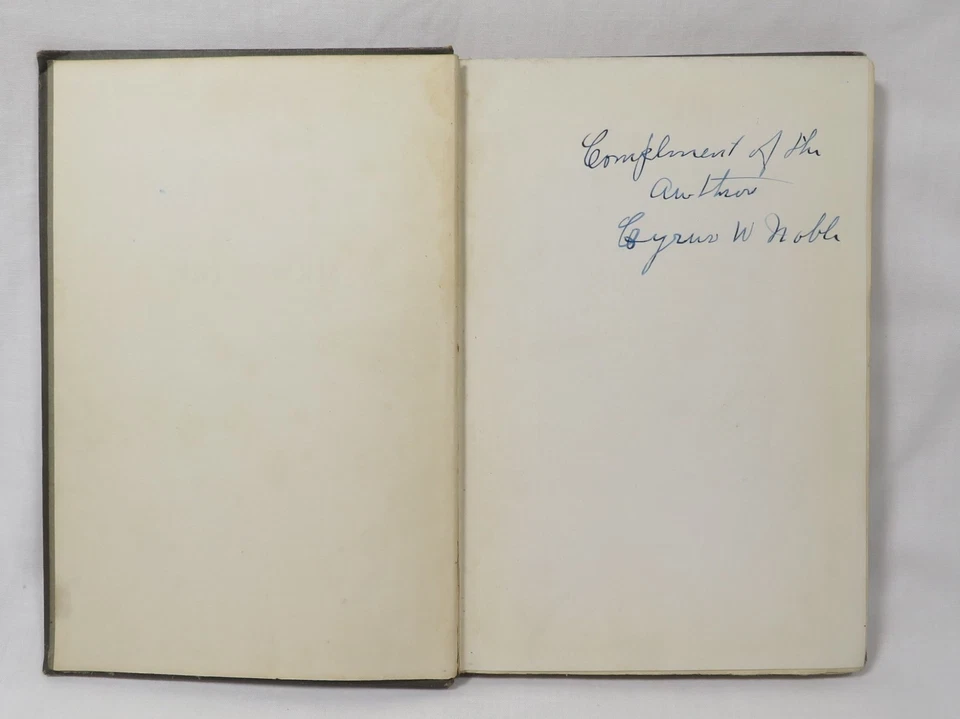 Compliment of the
Author
Cyrus W Noble